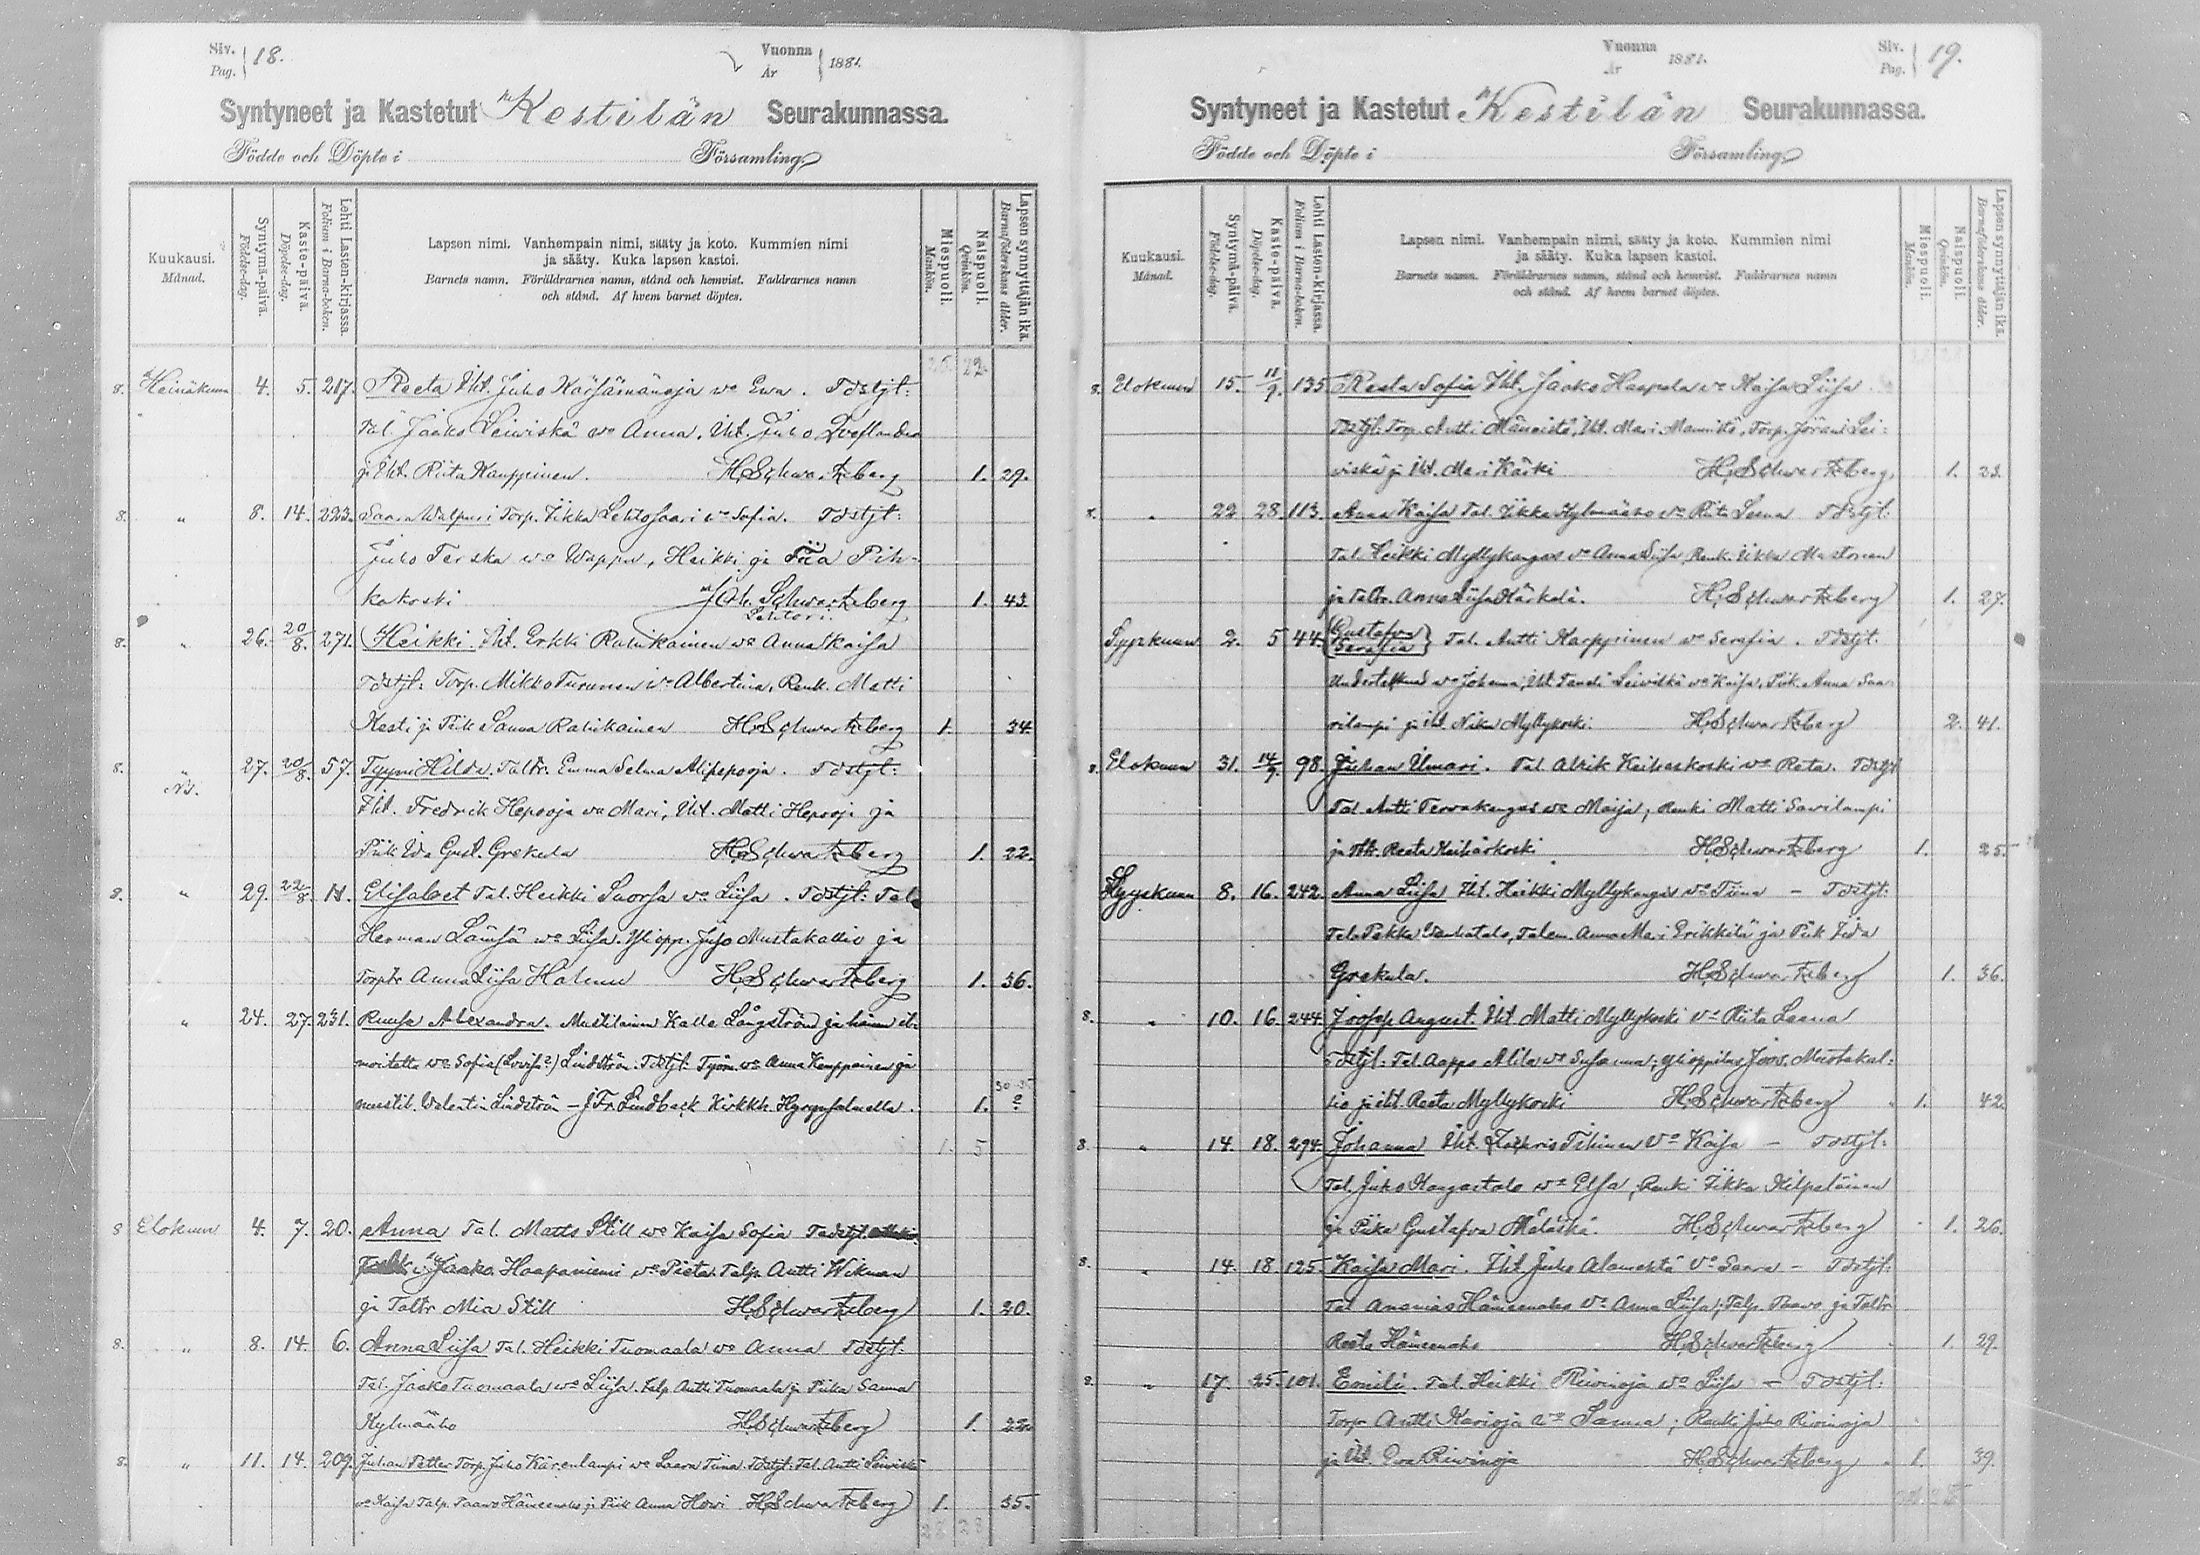 Siv. Pag. 18.
Vuonna År 1881.
Syntyneet ja Kastetut Kestilän Seurakunnassa.
Födde och Döpte i Församling
Kuukausi. Månad.
Syntymä-päivä. Födelse-dag.
Kaste-päivä. Döpelse-dag.
Lehti Lasten-kirjassa. Folium i Barna-boken.
Lapsen nimi. Vanhempain nimi, sääty ja koto. Kummien nimi
ja sääty. Kuka lapsen kastoi.
Barnets namn. Föräldrarnes namn, stånd och hemvist. Faddrarnes namn
och stånd. Af hvem barnet döptes.
Miespuoli. Mankön.
Naispuoli. Qvinkön.
Lapsen synnyttäjän ikä. Barnaföderskans ålder.
26 22
8. Heinäkuun 4. 5. 217. Reeta Iht. Juho Ewa. Tdstjt:
Tal. Jaako Leiwiskä wo Anna, Iht. Juho
ja Iht. Riita Kauppinen. H. Schwartzberg 1. 29.
8. " 8. 14. 223. Saara Walpuri Torp. Iikka Lehtosaari wo Sofia. Tdstjt:
Juho Terska wo Wappu, Heikki ja Pih-
kakoski Joh. Schwartzberg 1. 43
Lehtori.
8. " 26. 20/8. 271. Heikki. Iht. Erkki Rahikainen wo Anna Kaisa
Tdstjt: Torp. Mikko Turunen wo Albertina, Renk. Matti
Kesti ja Piik Sanna Rahikainen H. Schwartzberg 1. 34
8. " 27. 20/8. 57. Tyyni Hilda. Taltr. Emma Selma Alipepooja. Tdstjt:
Iht. Fredrik Hepooja wo Mari, Iht. Matti Hepooja ja
Piik Ida Gust. Grekula H. Schwartzberg 1. 22.
8. " 29. 22/8. Elisabet Tal. Heikki Suorsa wo Liisa. Tdstjt: Tal.
Herman Lämsä wo Liisa. Yliopp. Juho Mustakallio ja
Torptr Anna Liisa Halunu H. Schwartzberg 1. 36.
" 24. 27. 231. Alexandra. Mustilainen Kalle Långström ja hänen
wo Sofia (Lovisa?) Lindström. Tdstjt: Työm. wo Anna Kemppainen ja
mustil. Valentin Lindström – J. Fr. Lindbeck Kirkkh. Hyrynsalmella. 1.
1. 5
8 Elokuun 4. 7. 20. Anna Tal. Matts Still wo Kaisa Sofia Tdstjt.
Jaako Haapaniemi wo Pieta. Talp. Antti Wikman
ja Taltr Mia Still H. Schwartzberg 1. 20.
8. " 8. 14. 6. Anna Liisa Tal. Heikki Tuomaala wo Anna Tdstjt.
Tal. Jaako Tuomaala wo Liisa. Talp. Antti Tuomaala ja Piika Sanna
Kylmääho H. Schwartzberg 1. 22.
8. " 11. 14. 209. Juhan Petter Torp. Juho Kärenlampi wo Saara Tiina. Tdstjt. Tal. Antti Leiwiskä
wo Kaisa Talp. Paavo Häneenaho ja Piik Anna Howi H. Schwartzberg 1. 35.
Siv. Pag. 19.
Vuonna År 1881.
Syntyneet ja Kastetut Kestilän Seurakunnassa.
Födde och Döpte i Församling
Kuukausi. Månad.
Syntymä-päivä. Födelse-dag.
Kaste-päivä. Döpelse-dag.
Lehti Lasten-kirjassa. Folium i Barna-boken.
Lapsen nimi. Vanhempain nimi, sääty ja koto. Kummien nimi
ja sääty. Kuka lapsen kastoi.
Barnets namn. Föräldrarnes namn, stånd och hemvist. Faddrarnes namn
och stånd. Af hvem barnet döptes.
Miespuoli. Mankön.
Naispuoli. Qvinkön.
Lapsen synnyttäjän ikä. Barnaföderskans ålder.
8. Elokuun 15. 11/9. 135 Reeta Sofia Iht. Jaako Haapala wo Kaisa Liisa
Tdstjt: Torp. Antti Männistö, Iht. Mari Männistö, Torp. Jörani Lei-
viskä ja Iht. Mari Kärki H. Schwartzberg. 1. 23.
8. " 22 28. 113. Anna Kaisa Tal. Iikka Kylmääho wo Riita Leena Tdstjt:
Tal. Heikki Myllykangas wo Anna Liisa, Renk. Iikka Mustonen
ja Taltr. Anna Liisa Härkälä. H. Schwartzberg 1. 27.
Syyskuun 2. 5 44. Gustafva Serafia } Tal. Antti Karppinen wo Serafia. Tdstjt.
wo Johanna, Iht Taneli Leiviskä wo Kaisa, Piik Anna Saa-
rilampi ja iht. Niku Myllykoski. H. Schwartzberg 2. 41.
8. Elokuun 31. 14/9. 98. Juhan Ilmari. Tal. Alrik Keihaskoski wo Reta. Tdstjt
Tal. Antti Tervakangas wo Maija; Renki Matti Savilampi
ja Reeta Keihäskoski H. Schwartzberg 1. 25.
Syyskuun 8. 16. 242. Anna Liisa Iht. Heikki Myllykangas wo Tiina – Tdstjt:
Tal. Pekka Wanhatalo, Talem. Anna Mari Erikkilä ja Piik Iida
Grekula. H. Schwartzberg 1. 36.
8. " 10. 16. 244. Joosep August. Iht Matti Myllykoski wo Riita Leena
Tdstjt: Tal. Aappo Alila wo Susanna; ylioppilas Joos. Mustakal-
lio ja iht. Reeta Myllykoski H. Schwartzberg 1. 42.
8. " 14. 18. 294. Johanna Iht. Tihinen wo Kaisa – Tdstjt:
Tal. Juho Kangastalo wo Elsa, Renki Iikka Kilpeläinen
ja Piika Gustafva Mäläskä. H. Schwartzberg 1. 26.
8. " 14. 18. 125. Kaisa Mari. Iht Juho Alamehtä wo Saara – Tdstjt:
Tal Ananias Häneenaho wo Anna Liisa; Talp. Paavo ja Taltr
Reeta Häneenaho H. Schwartzberg 1. 29.
8. " 17. 25. 101. Emili. Tal. Heikki Riwinoja wo Liisa – Tdstjt:
Torp. Antti Karioja wo Sanna; Renki Juho Riwinoja
ja Iht. Eva Riwinoja H. Schwartzberg 1. 39.